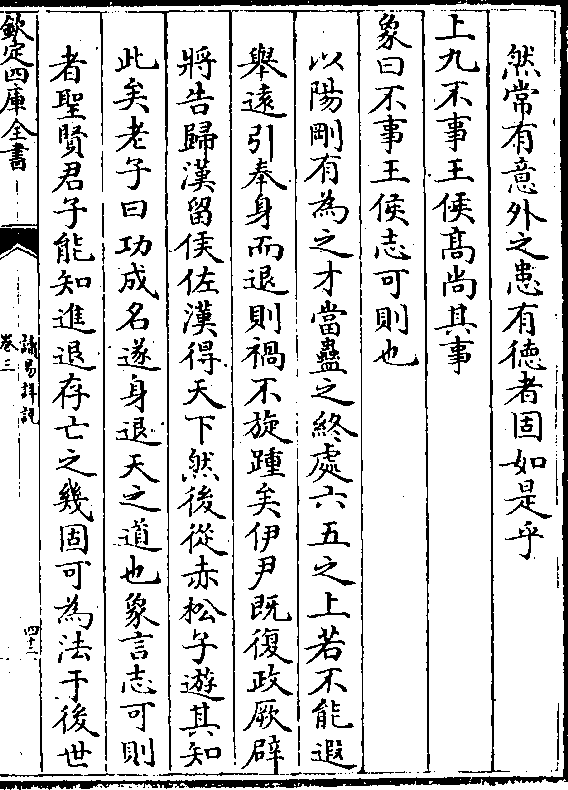 然常有意外之患有徳者固如是乎
上九不事王侯髙尚其事
象曰不事王侯志可則也
以陽剛有為之才當蠱之終處六五之上若不能遐
舉遠引奉身而退則禍不旋踵矣伊尹既復政厥辟
將告歸漢留侯佐漢得天下然後從赤松子遊其知
此矣老子曰功成名遂身退天之道也象言志可則
者聖賢君子能知進退存亡之幾固可為法于後世
欽定四庫全書
讀易詳説
卷三
四十三